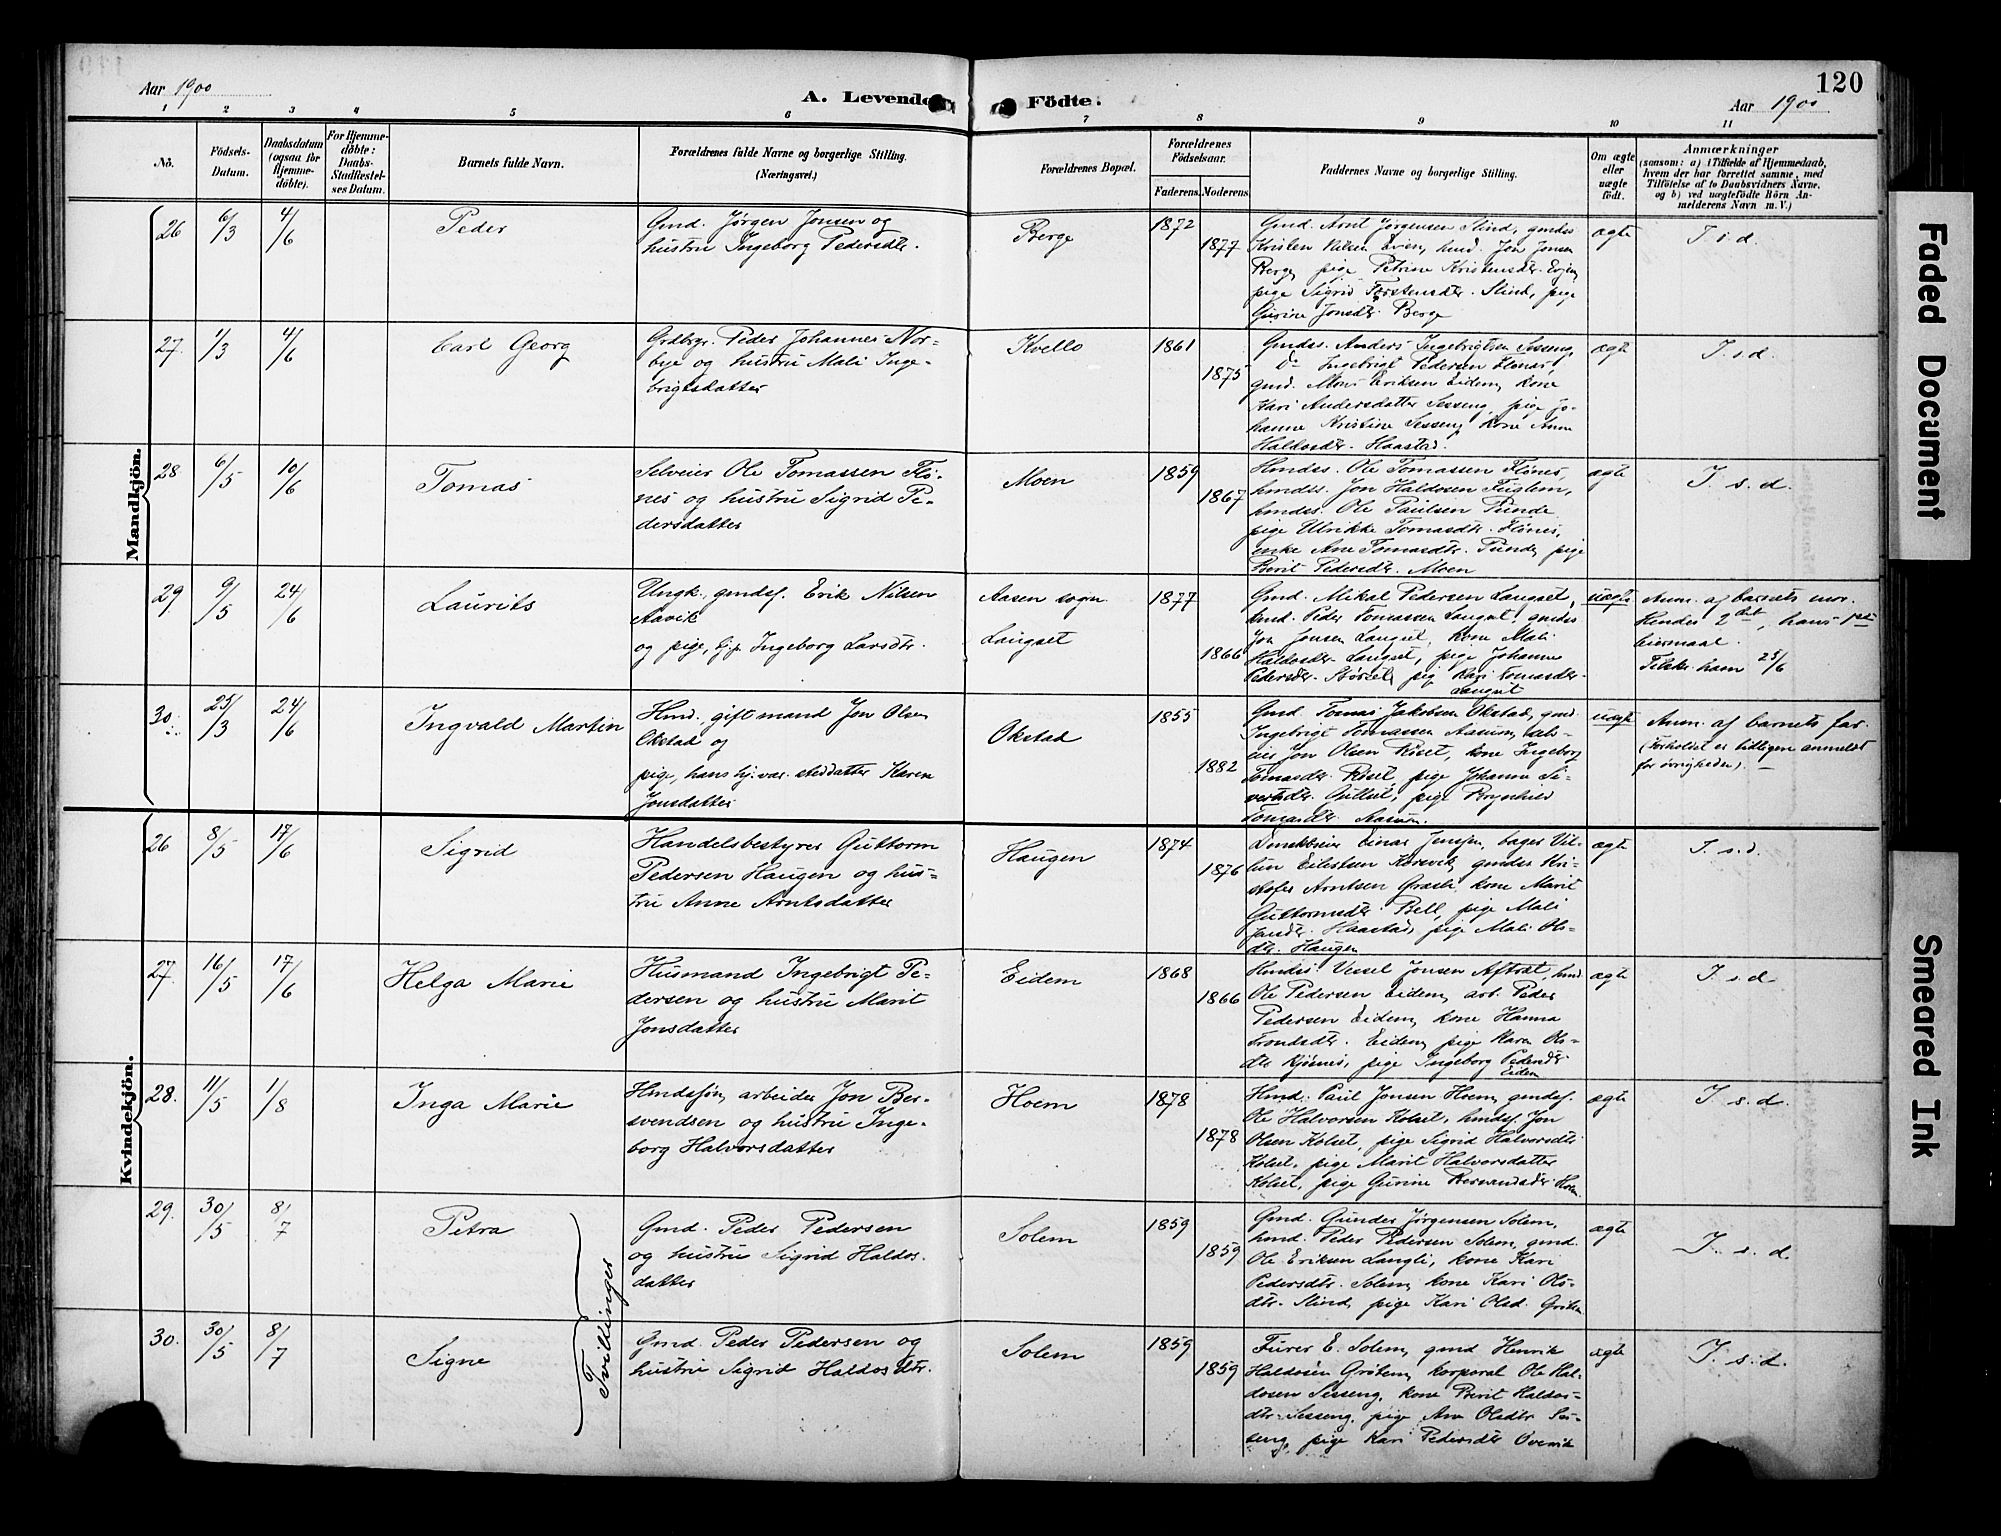 120
Aar 1900
A. Levende Födte.
Aar 1900
1 2 3 4 5 6 7 8 9 10 11
No.
Födsels-Datum.
Daabsdatum (ogsaa for Hjemmedöbte).
For Hjemmedöbte: Daabs-Stadfæstelses Datum.
Barnets fulde Navn.
Forældrenes fulde Navne og borgerlige Stilling. (Næringsvei.)
Forældrenes Bopæl.
Forældrenes Födselsaar.
Faderens. Moderens.
Faddernes Navne og borgerlige Stilling.
Om ægte eller uægte födt.
Anmærkninger
(saasom: a) i Tilfælde af Hjemmedaab,
hvem der har forrettet samme, med
Tilföielse af to Daabsvidners Navne.
og b) ved uægtefödte Börn An-
melderens Navn m. V.)
Mandkjön.
26 6/3 4/6 Peder
Gmd. Jørgen Jonsen og
hustru Ingeborg Pedersdtr.
Berge
1872
1877
Gmd. Arnt Jørgensen Stind, gmdss
Kristen Nilsen Evjen, hmd. Jon Jonsen
Berge, pige Petrine Kristensdtr. Evjen,
pige Sigrid Torstensdtr. Stind, pige
Gurine Jonsdtr. Berge
ægte
I. s. d.
27. 1/3 4/6 Carl Georg
Grdbrgr. Peder Johannes Nor-
bye og hustru Mali Inge-
brigtsdatter
Kvello
1861
1875
Gmdss. Anders Ingebrigtsen Sesseng,
Do Ingebrigt Pedersen Flønæs,
gmd. Mons Eriksen Eidem, kone
Kari Andersdatter Sesseng, pige Jo-
hanne Kristine Sesseng, kone Anne
Haldosdtr. Haastad.
ægte
I. s. d.
28 6/5 10/6 Tomas
Selveier Ole Tomassen Flø-
nes og hustru Sigrid Pe-
dersdatter
Moen
1859
1867
Hmdss. Ole Tomassen Flønes,
hmdss. Jon Haldosen Fuglem,
hmdss. Ole Paulsen Punde
pige Ulrikke Tomasdtr. Flönes,
enke Ane Tomasdtr. Punde, pige
Berit Pedersdtr. Moen
ægte
I. s. d.
29 9/5 24/6 Laurits
Ungk., gmdsf. Erik Nilsen
Aavik
og pige, Ingeborg Larsdtr.
Aasen sogn.
Langset
1877
1866
Gmd. Mikal Pedersen Langset,
hmd. Peder Tomassen Langset, gmdss
Jon Jonsen Langset, kone Mali
Haldosdtr. Langset, pige Johanne
Pedersdtr. Störset, pig Kari Tomasdtr.
Langset
uægte
Anm. af barnets mor.
Hendes 2det, hans 1ste
leiermaal.
Tilskr. ham 25/6
30. 25/3 24/6 Ingvald Martin
Hmd., gift mand Jon Olsen
Okstad og
pige, hans hj. vær. steddatter Karen
Jonsdatter
Okstad
1855
1882
Gmd. Tomas Jakobsen Okstad, gmd.
Ingebrigt Tomassen Aasum, sels-
eier Jon Olsen Röset, kone Ingeborg
Tomasdtr. Röset, pige Johanna Si-
vertsdtr. Gullset, pige Brynhild
Tomasdtr. Aasum.
uægte
Anm. af barnets far.
(Forholdet er tidligere anmeldt
for övrigheden). —
Kvindekjön.
26 8/5 17/6 Sigrid
Handelsbestyrer Guttorm
Pedersen Haugen og hus-
tru Anne Arntsdatter
Haugen
1874
1876
Einar Jensen, bager Vil-
Eilertsen Korsvik, gmdss Kri-
stofer Arntsen Græsli, kone Marit
Guttormsdtr. Bell, pige Mali
Jonsdtr. Haastad, pige Mali Ols-
dtr. Haugen
ægte
I. s. d.
27. 16/5 17/6 Helga Marie
Husmand Ingebrigt Pe-
dersen og hustru Marit
Jonsdatter
Eidem
1868
1866
Hmdss Vessel Jonsen Aftræt, hmd
Ole Pedersen Eidem, arb. Peder
Pedersen Eidem, kone Hanna
Trondsdtr. Eidem, pige Karen Ols-
dtr Kjøsnes, pige Ingeborg Pedersdtr
Eidem
ægte
I. s. d
28. 11/5 1/8 Inga Marie
Hmdssøn, arbeider Jon Ber-
svendsen og hustru Inge-
borg Halvorsdatter
Hoem
1878
1878
Hmd. Paul Jonsen Hoem, gmdsf.
Ole Halvorsen Kolset, hmdsf. Jon
Olsen Kolset, pige Sigrid Halvorsdtr.
Kolset, pige Marit Halvorsdatter
Kolset, pige Gurine Bersvendsdtr Hoem.
ægte
I. s. d.
29. 30/5 8/7 Petra
Tvillinger
Gmd. Peder Pedersen
og hustru Sigrid Haldos-
datter
Solem
1859
1859
Gmd. Gunder Jørgensen Solem,
hmd. Peder Pedersen Solem, gmd.
Ole Eriksen Langli, kone Kari
Pedersdtr. Solem, kone Kari Ols-
dtr. Stind, pige Kari Olsd. Gröben
ægte
I. s. d.
30. 30/5 8/7 Signe
Gmd. Peder Pedersen og
hustru Sigrid Haldosdtr.
Solem
1859
1859
Furer E. Solem, gmd Henrik
Haldosen Gröben, korporal Ole Hal-
dosen Sesseng, kone Berit Haldos-
dtr. Sesseng, pige Ane Olsdtr Ses-
seng, pige Kari Pedersdtr Overvik
ægte
I. s. d.
Faded Document
Smeared Ink